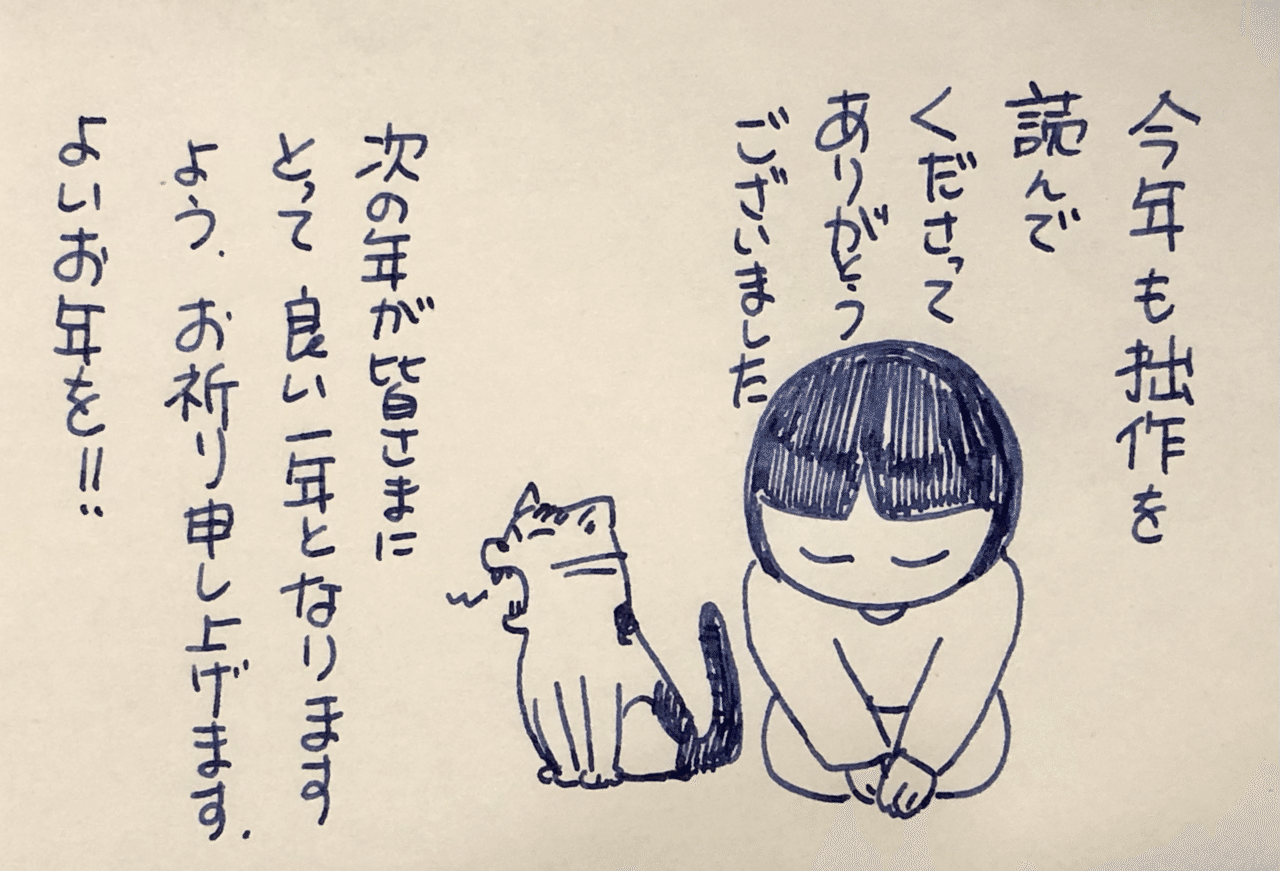 今年も拙作を
読んで
くださって
ありがとう
ございました
次の年が皆さまに
とって良い一年となります
よう、お祈り申し上げます.
よいお年を!!